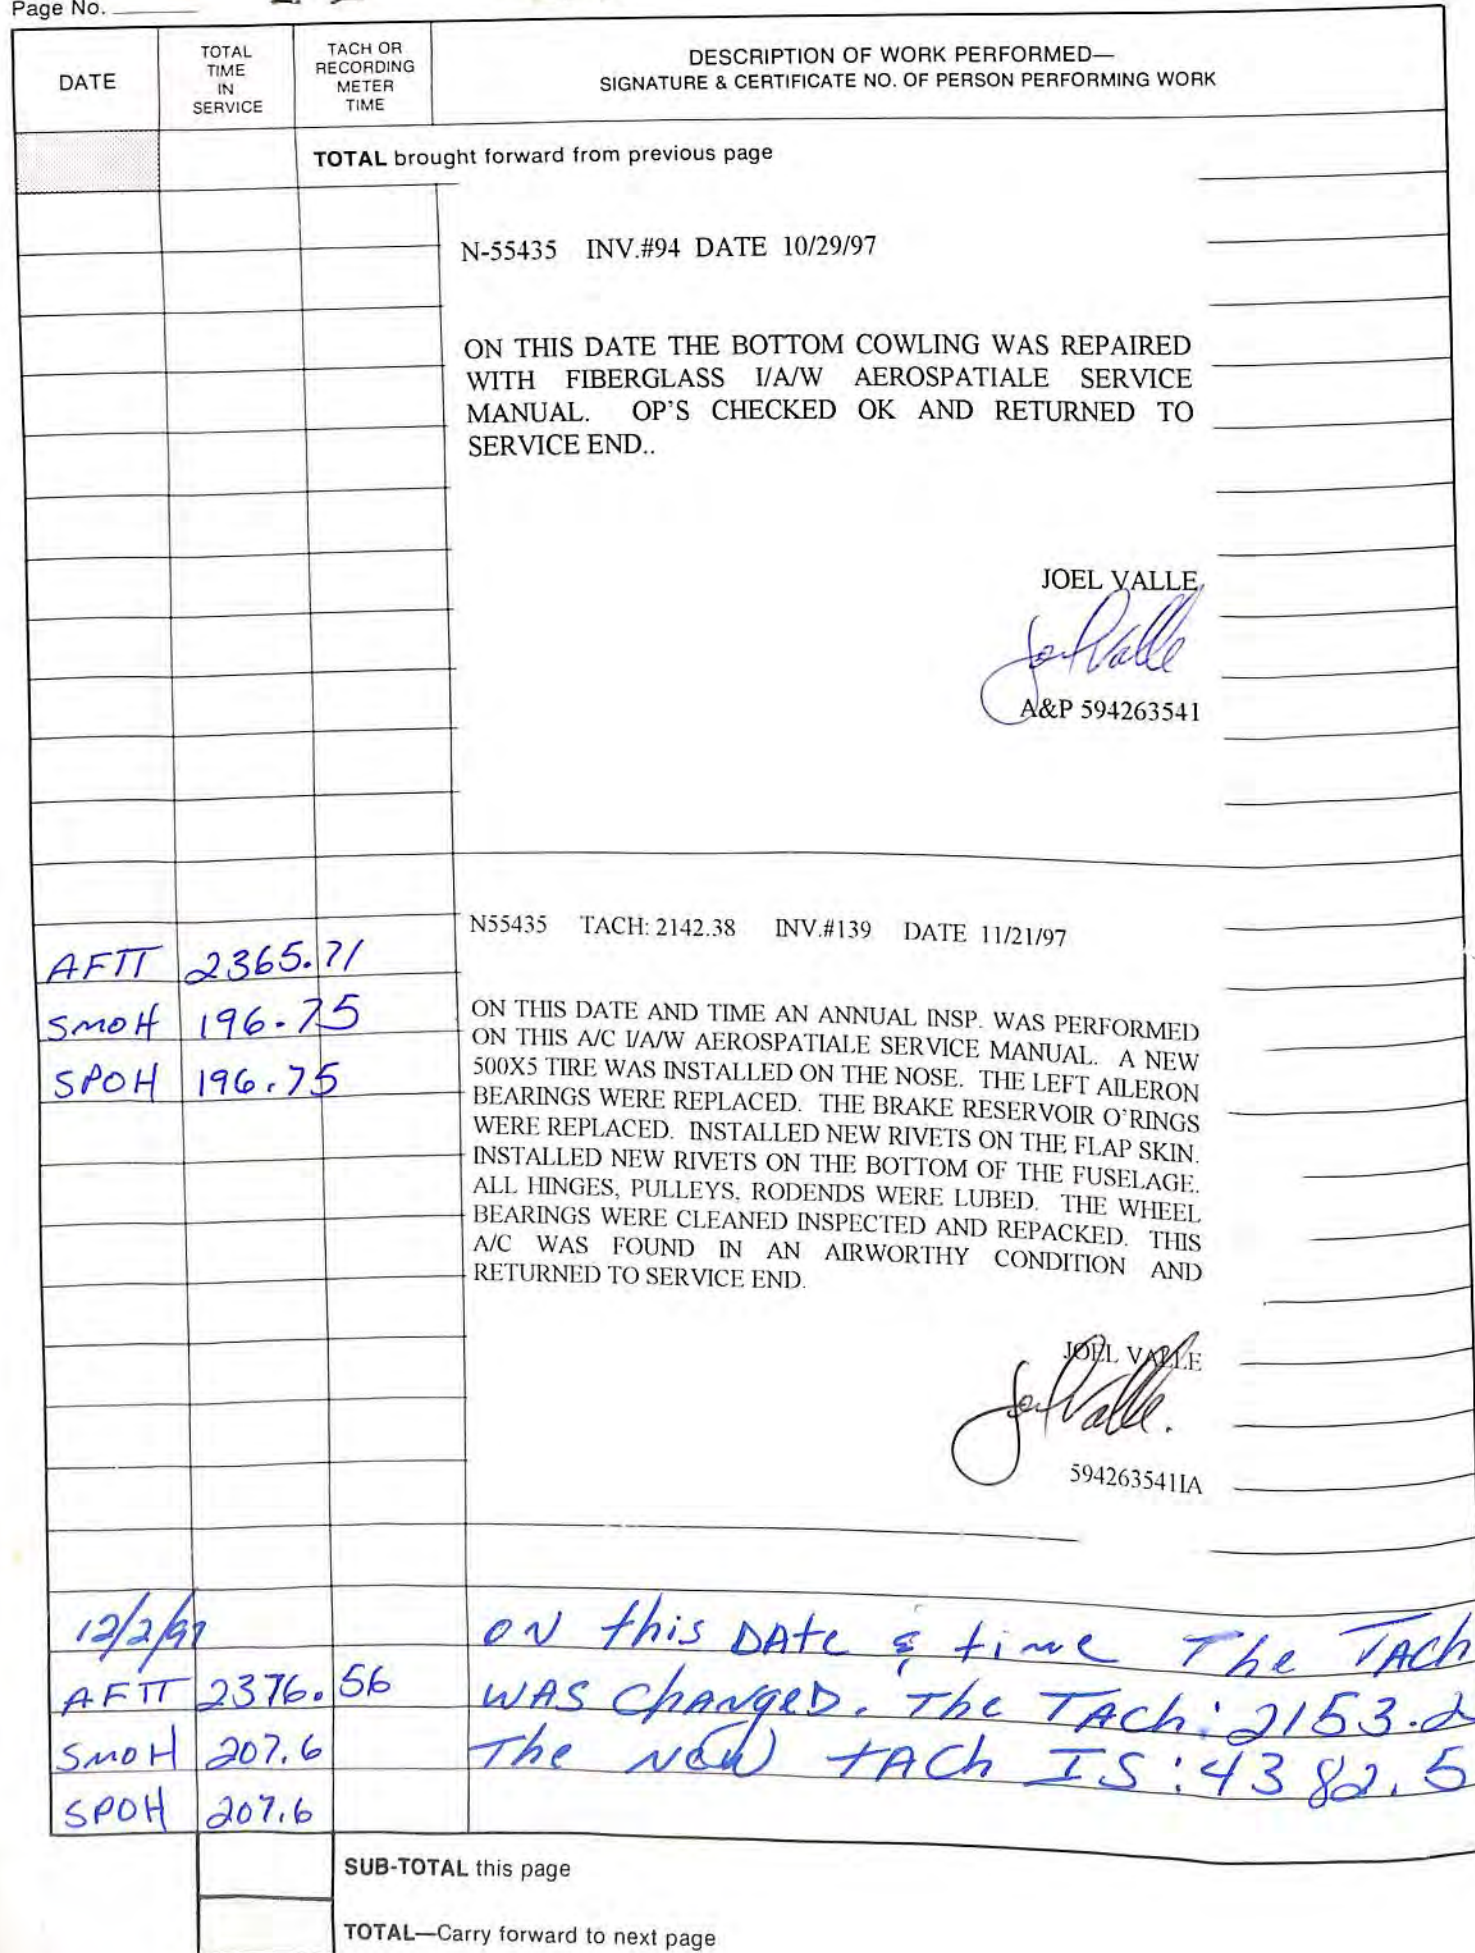 Page No.
DATE
TOTAL
TIME
IN
SERVICE
TACH OR
RECORDING
METER
TIME
DESCRIPTION OF WORK PERFORMED—
SIGNATURE & CERTIFICATE NO. OF PERSON PERFORMING WORK
TOTAL brought forward from previous page
N-55435 INV.#94 DATE 10/29/97
ON THIS DATE THE BOTTOM COWLING WAS REPAIRED
WITH FIBERGLASS I/A/W AEROSPATIALE SERVICE
MANUAL. OP'S CHECKED OK AND RETURNED TO
SERVICE END..
JOEL VALLE
Joel Valle
A&P 594263541
N55435 TACH: 2142.38 INV.#139 DATE 11/21/97
AFTT 2365.71
SMOH 196.75
SPOH 196.75
ON THIS DATE AND TIME AN ANNUAL INSP. WAS PERFORMED
ON THIS A/C I/A/W AEROSPATIALE SERVICE MANUAL. A NEW
500X5 TIRE WAS INSTALLED ON THE NOSE. THE LEFT AILERON
BEARINGS WERE REPLACED. THE BRAKE RESERVOIR O'RINGS
WERE REPLACED. INSTALLED NEW RIVETS ON THE FLAP SKIN.
INSTALLED NEW RIVETS ON THE BOTTOM OF THE FUSELAGE.
ALL HINGES, PULLEYS, RODENDS WERE LUBED. THE WHEEL
BEARINGS WERE CLEANED INSPECTED AND REPACKED. THIS
A/C WAS FOUND IN AN AIRWORTHY CONDITION AND
RETURNED TO SERVICE END.
JOEL VALLE
Joel Valle.
594263541IA
12/2/97 ON this DAte & time The TAch
AFTT 2376.56 WAS ChANgeD. The TAch: 2153.2
SMOH 207.6 The New tACh IS: 4382.5
SPOH 207.6
SUB-TOTAL this page
TOTAL—Carry forward to next page